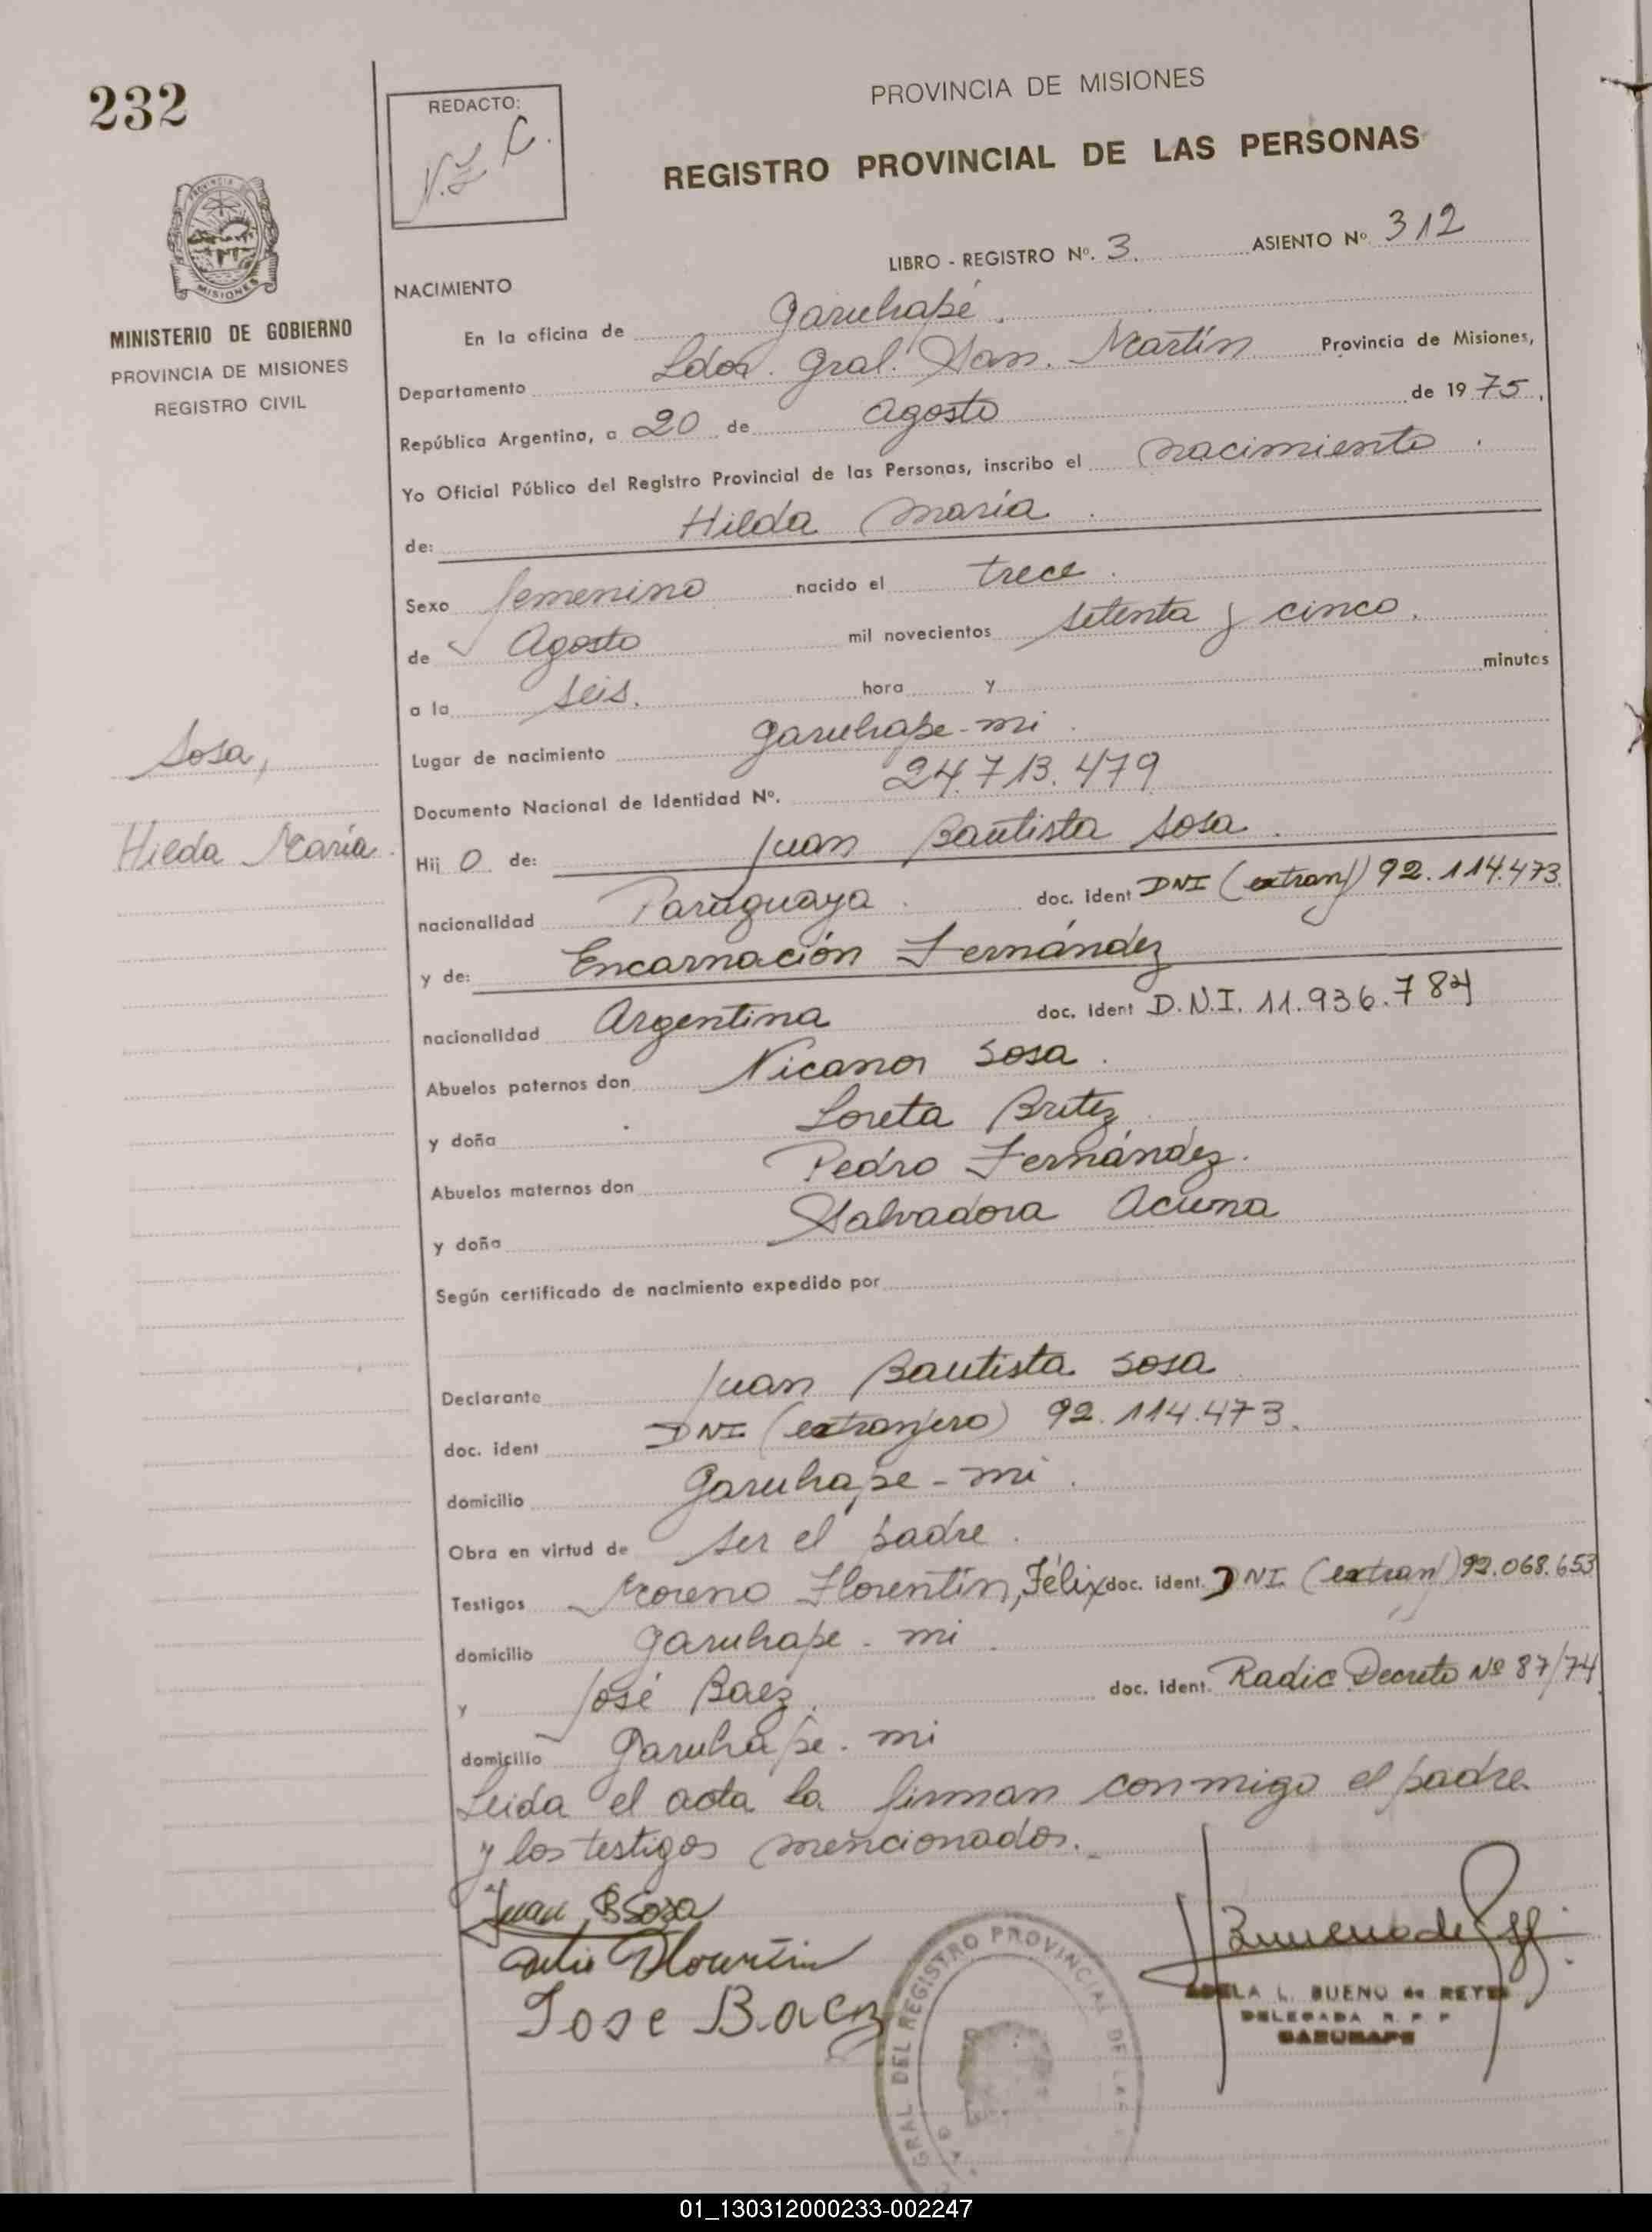 232
REDACTO:
PROVINCIA DE MISIONES
REGISTRO PROVINCIAL DE LAS PERSONAS
LIBRO - REGISTRO Nº. 3. ASIENTO Nº 312
MISIONES
MINISTERIO DE GOBIERNO
PROVINCIA DE MISIONES
REGISTRO CIVIL
NACIMIENTO
En la oficina de Garuhapé.
Departamento Ldor. Gral. San. Martín Provincia de Misiones,
República Argentina, a 20 de Agosto de 1975,
Yo Oficial Público del Registro Provincial de las Personas, inscribo el nacimiento.
de: Hilda María.
Sexo femenino nacido el trece.
de Agosto mil novecientos setenta y cinco.
a la seis. hora y minutos
Lugar de nacimiento Garuhape-mi.
Documento Nacional de Identidad Nº. 24.713.479
Sosa,
Hilda María.
Hij o de: Juan Bautista Sosa.
nacionalidad Paraguaya. doc. ident DNI (extranj) 92.114.473
y de: Encarnación Fernández
nacionalidad Argentina doc. ident D.N.I. 11.936.784
Abuelos paternos don Nicanor Sosa.
y doña Loreta Britez
Abuelos maternos don Pedro Fernández.
y doña Salvadora Acuna
Según certificado de nacimiento expedido por
Declarante Juan Bautista Sosa
doc. ident DNI (extranjero) 92.114.473.
domicilio Garuhape-mi.
Obra en virtud de ser el padre.
Testigos Moreno Florentín, Félix doc. ident. DNI (extranj) 92.068.653
domicilio Garuhape-mi.
y José Baez. doc. ident. Radic Decreto Nº 87/74
domicilio Garuhape-mi
Leida el acta la firman conmigo el padre
y los testigos mencionados.
Juan B Sosa
Jose Baez
GRAL DEL REGISTRO PROVINCIAL DE LAS
ADELA L. BUENO de REYES
DELEGADA R. P. P
GARUHAPE
01_130312000233-002247